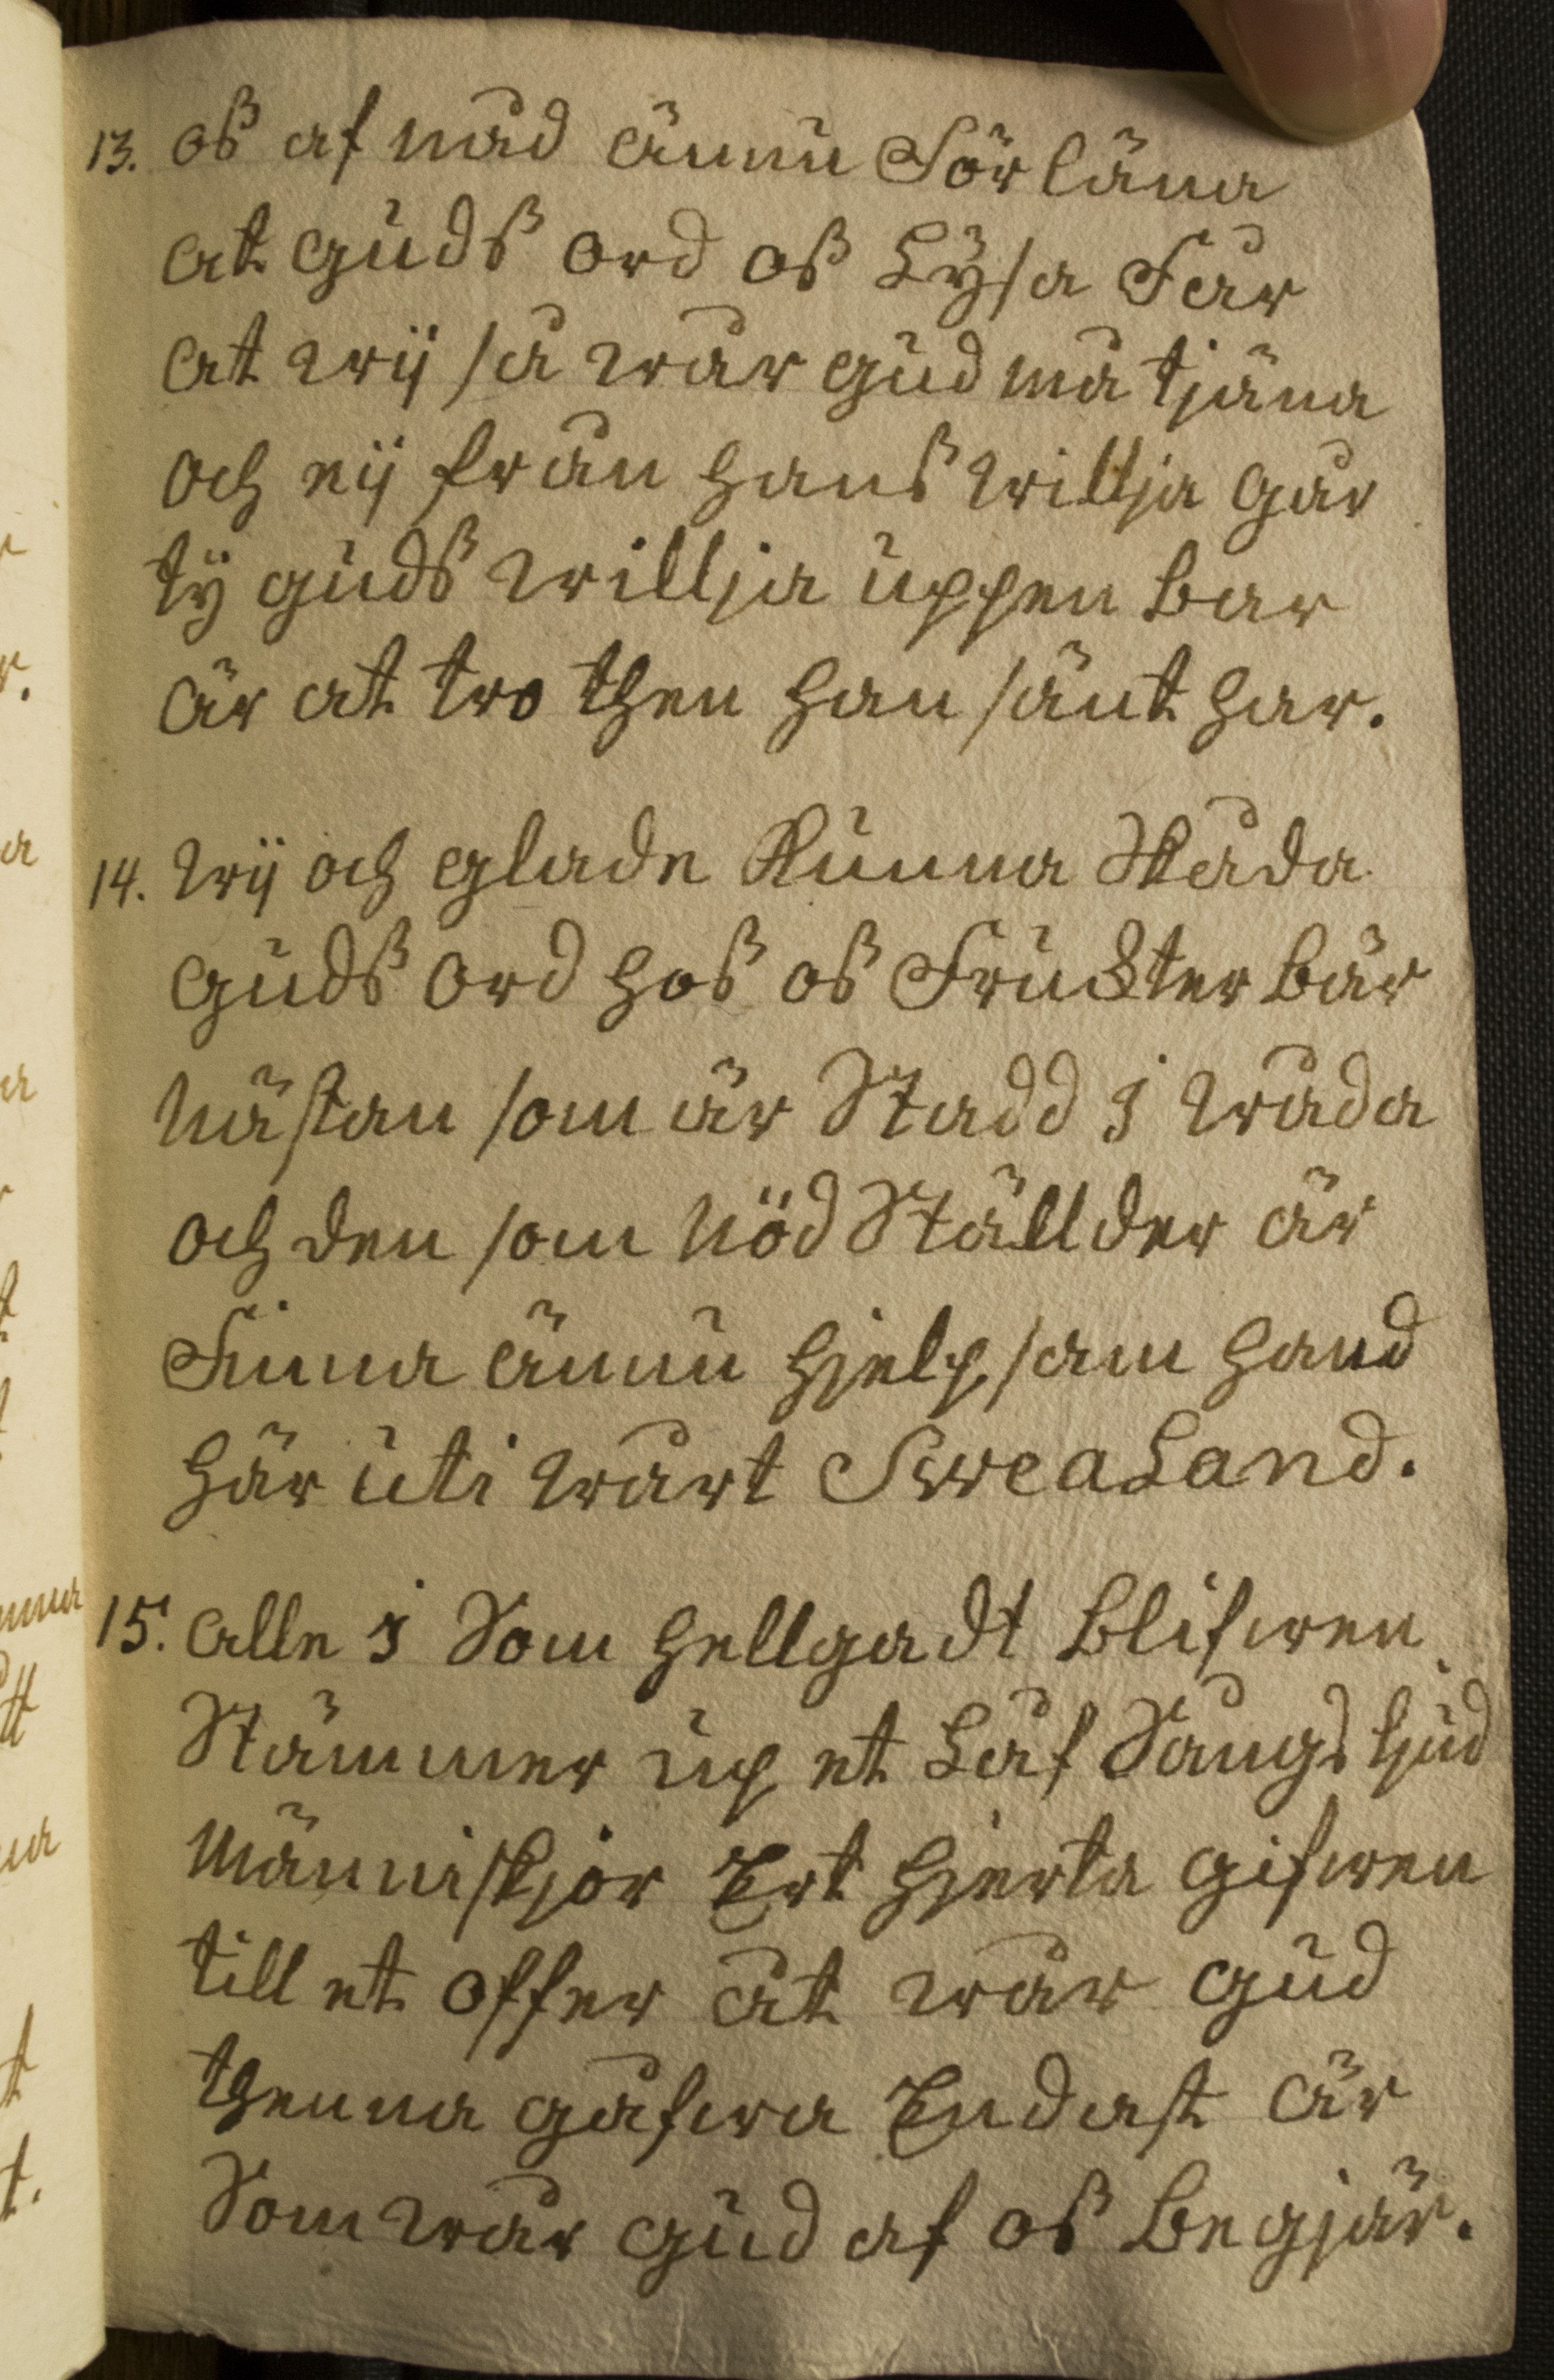 13. oß af nåd ännu Förläna
at guds ord oß Lysa Får
at wij så wår gud må tjäna
och eij från hanß willja går
ty gudß willja uppen bar
är at tro then han sänt har.
14. wij och glade Kunna skåda
gudß ord hoß oß Fruckter bär
Nästan som är Stadd j wåda
och den som Nöd Ställder är
Finna ännu hjelpsam hand
här uti wårt SweaLand.
15. alle j Som hellgadt blifwen
Stämmer up et Låf Sångs ljud
Människjor Ert hjerta gifwen
till et offer åt wår gud
thenna gåfwa Endast är
Som wår gud af oß begjär.